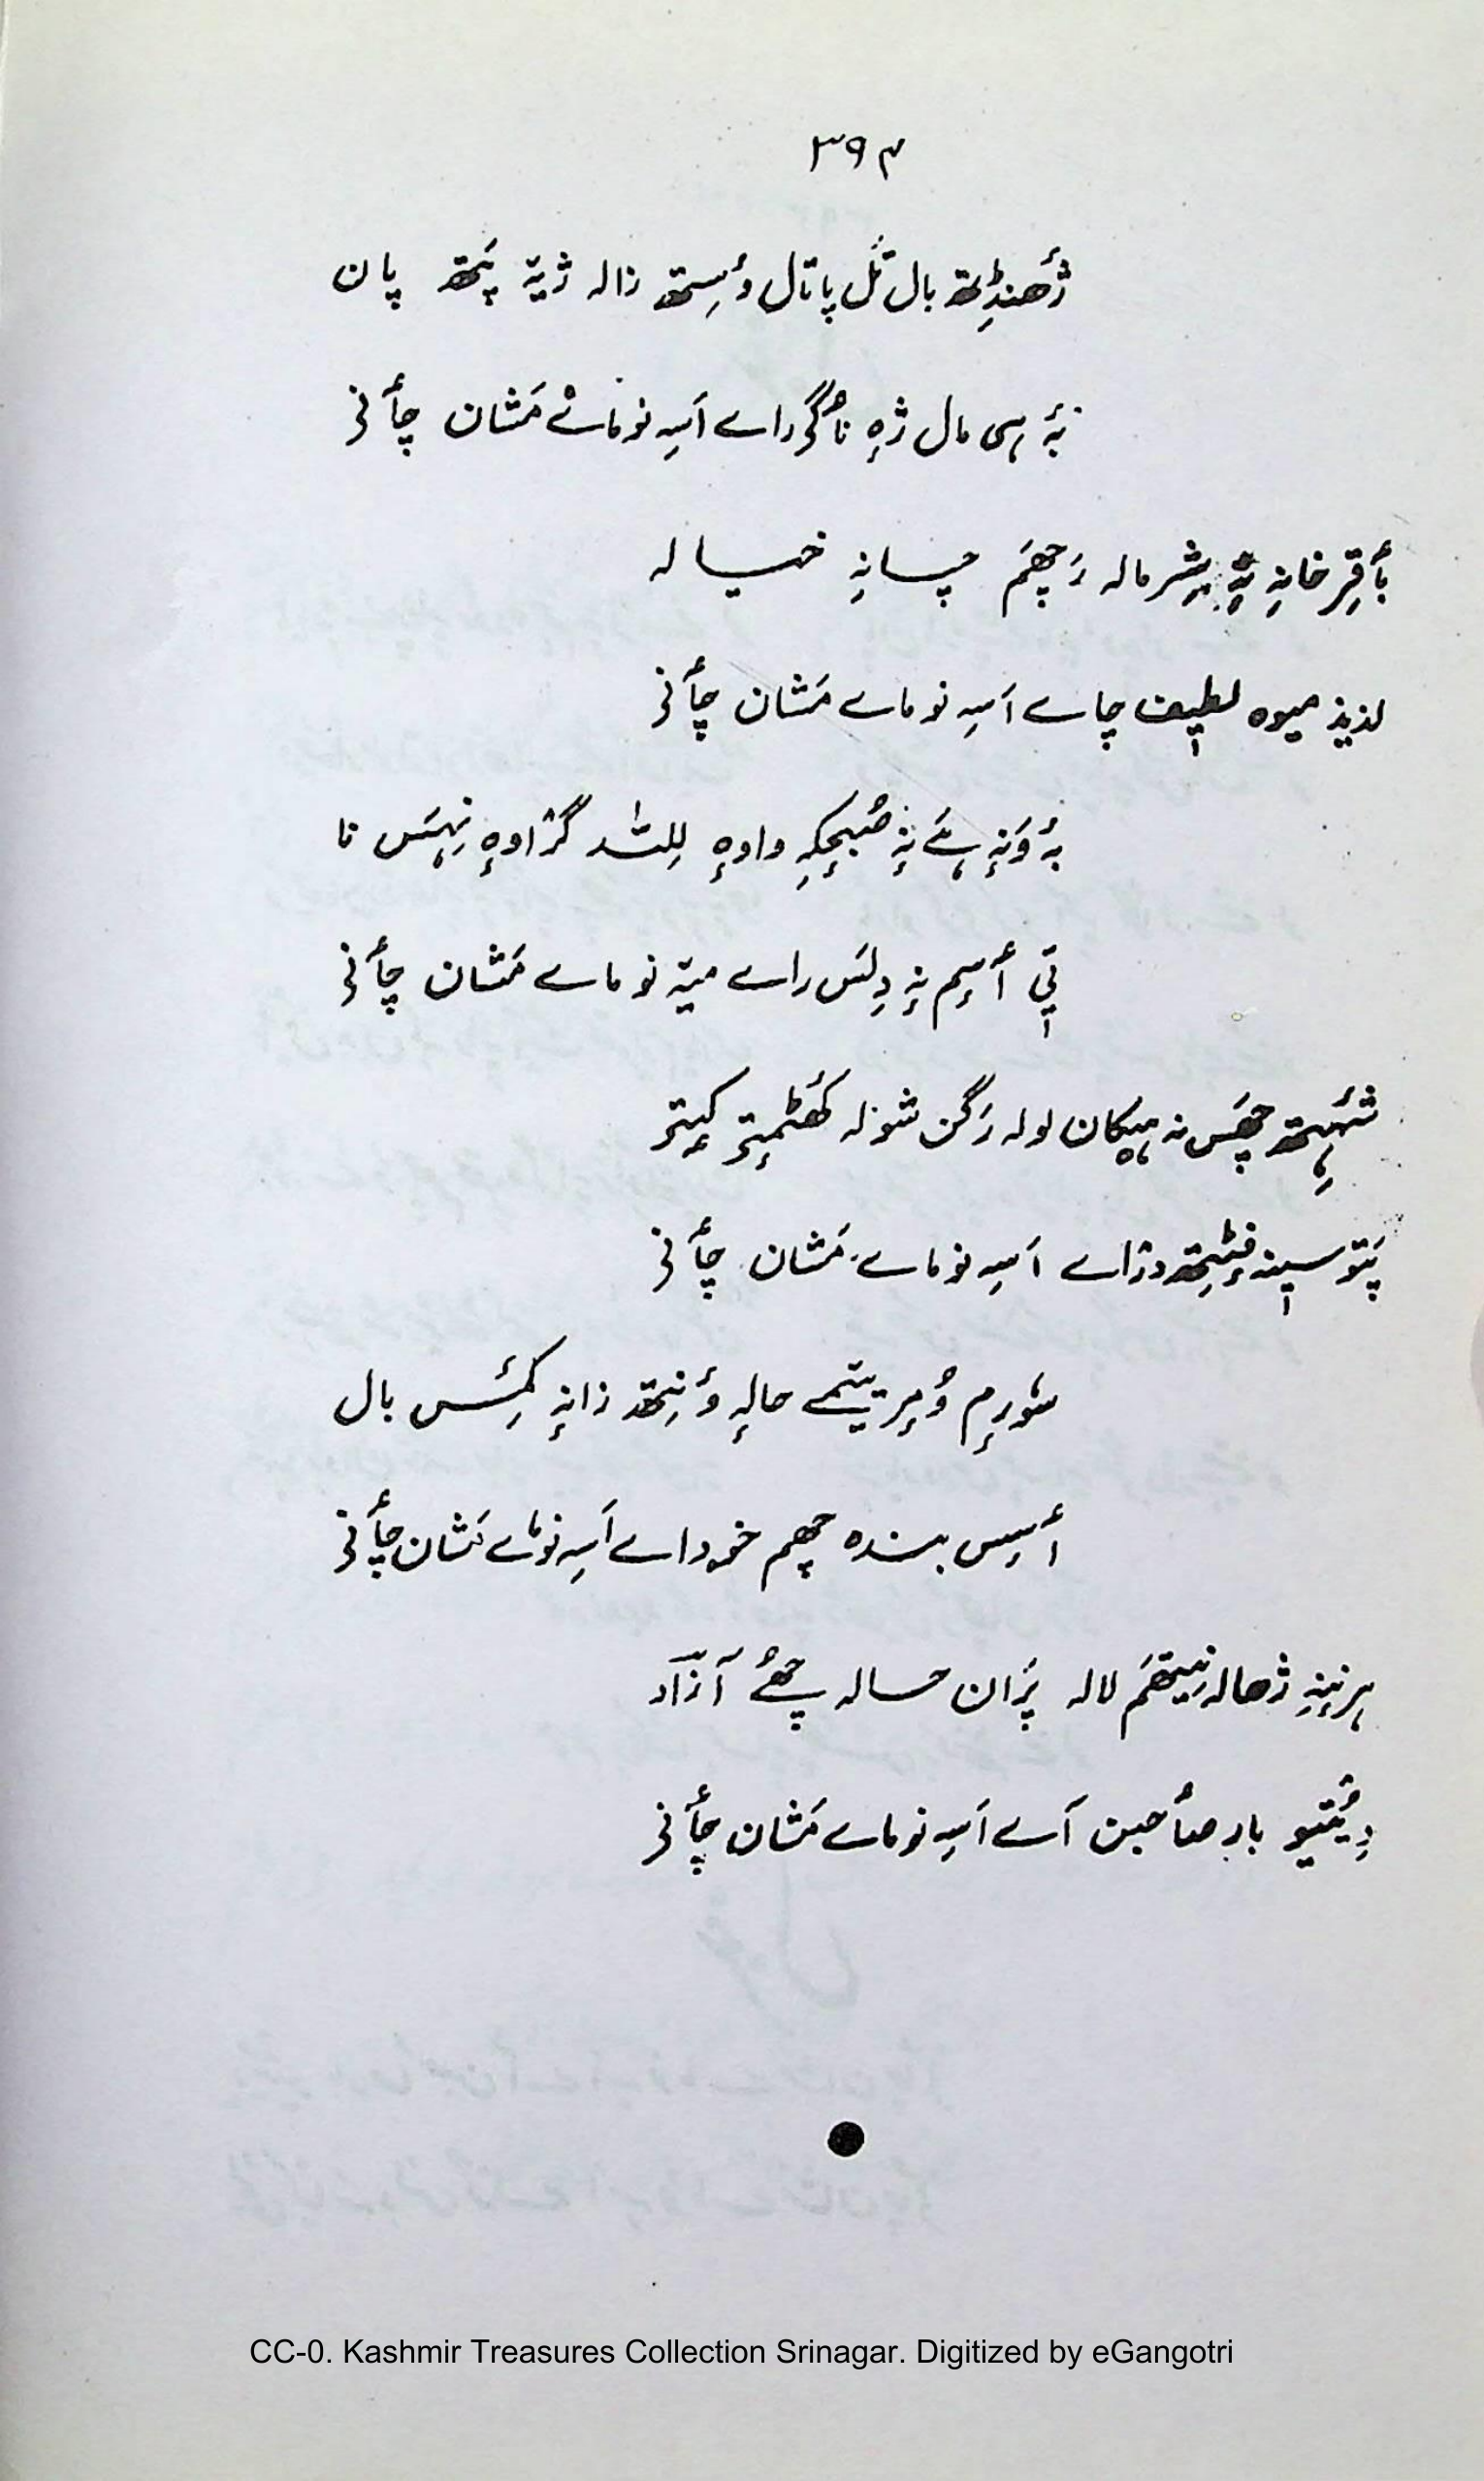 ۳۹۴
ژٔھنڈِتھ بال تَل پاتال وُسِتھ زالہٕ ژیتہٕ پَتھ پان
بہٕ ہی مال ژٕہ ناگرٕاے اَسہِ نو ماے مَشان چأنی
بأقِر خانہِ تہٕ شِر مالہ رَچھَم چسانہِ خیالہ
لذیذ میوہ لطیٖف چاے اَسہِ نو ماے مَشان چأنی
بہٕ وَنہٕ ہَے نہٕ صُبحِکہِ واوہٕ لِلّٰد گژاوہٕ نِہَس نا
تیٖ أسِم نہٕ دِلَس راے میتہٕ نو ماے مَشان چأنی
چھَس نہ ہیکان لولہ رَگن شونلہ کٔھٹمٕتی کیٖتی
پَتو سیٖنہ فٕٹِتھ دزاے اَسہِ نو ماے مَشان چأنی
سٔورِم وُمِر یتیمے حالہٕ وٕنِتھ زانہٕ کَمِس بال
أسِس بندہ چھم خوداے اَسہِ نو ماے مَشان چأنی
ژھالہٕ نِیتھَم لالہ پَران حسالہ چھُے آزاد
دِیُتیو بار صأحبن آے اَسہِ نو ماے مَشان چأنی
CC-0. Kashmir Treasures Collection Srinagar. Digitized by eGangotri